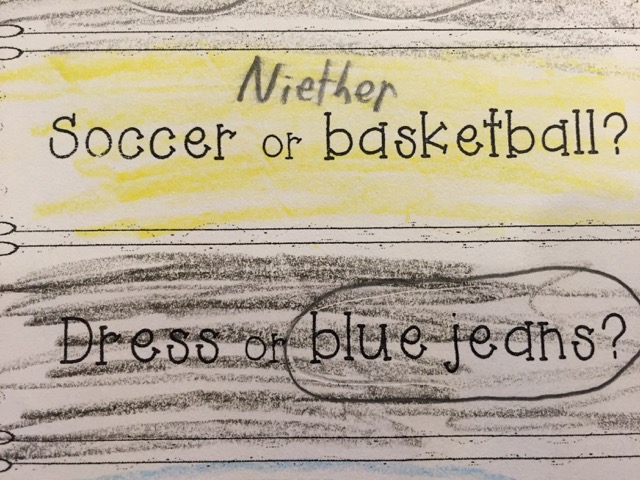 Niether
Soccer or basketball?
Dress or blue jeans?